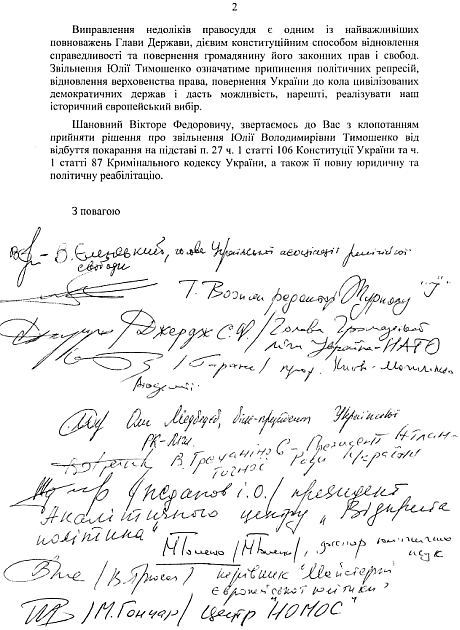 2
Виправлення недоліків правосуддя є одним із найважливіших
повноважень Глави Держави, дієвим конституційним способом відновлення
справедливості та повернення громадянину його законних прав і свобод.
Звільнення Юлії Тимошенко означатиме припинення політичних репресій,
відновлення верховенства права, повернення України до кола цивілізованих
демократичних держав і дасть можливість, нарешті, реалізувати наш
історичний європейський вибір.
Шановний Вікторе Федоровичу, звертаємось до Вас з клопотанням
прийняти рішення про звільнення Юлії Володимирівни Тимошенко від
відбуття покарання на підставі п. 27 ч. 1 статті 106 Конституції України та ч.
1 статті 87 Кримінального кодексу України, а також її повну юридичну та
політичну реабілітацію.
З повагою
В. Єленський, голова Української асоціації релігійної
свободи
Т. Возняк редактор Журналу "Ї"
/Джердж С.Ф./ Голова Громадської
ліги Україна-НАТО
/ проф. Києво-Могилянської
Академії.
Медведєв, віце-президент Української
В. Гречанінов - Президент Атлан-
тичної Ради України
/Жданов І.О./ президент
Аналітичного центру „Відкрита
політика"
доктор політичних
наук
керівник "Майстерні
європейської політики"
/М. Гончар/ Центр "НОМОС"